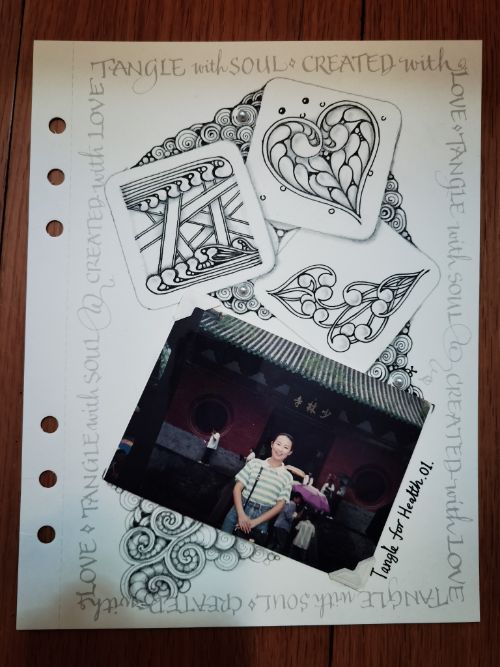 TANGLE with SOUL ⬥ CREATED with
LOVE ⬥ TANGLE with SOUL & CREATED with LOVE
TANGLE with SOUL ⬥ CREATED with
LOVE ⬥ TANGLE with SOUL & CREATED with LOVE
少林寺
Tangle for Health.01.